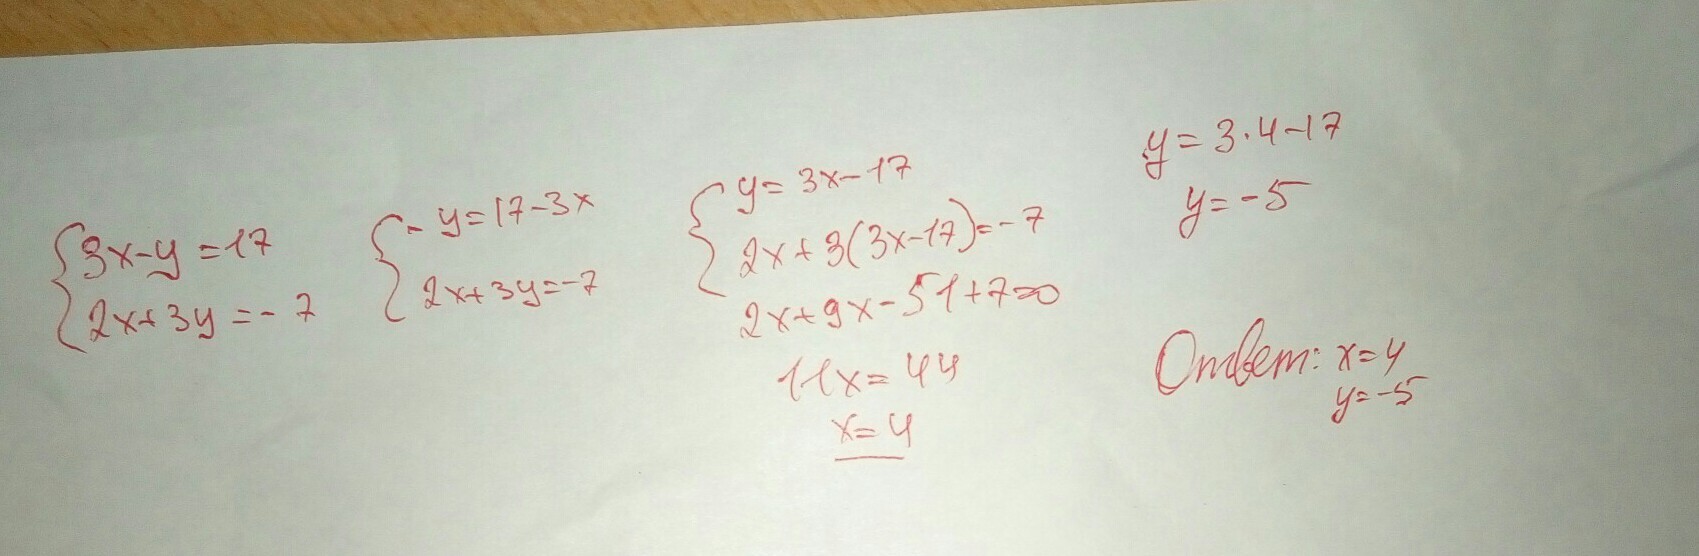 {3x-y=17
2x+3y=-7
{-y=17-3x
2x+3y=-7
{y=3x-17
2x+3(3x-17)=-7
2x+9x-51+7=0
11x=44
x=4
y=3·4-17
y=-5
Ответ: x=4
y=-5